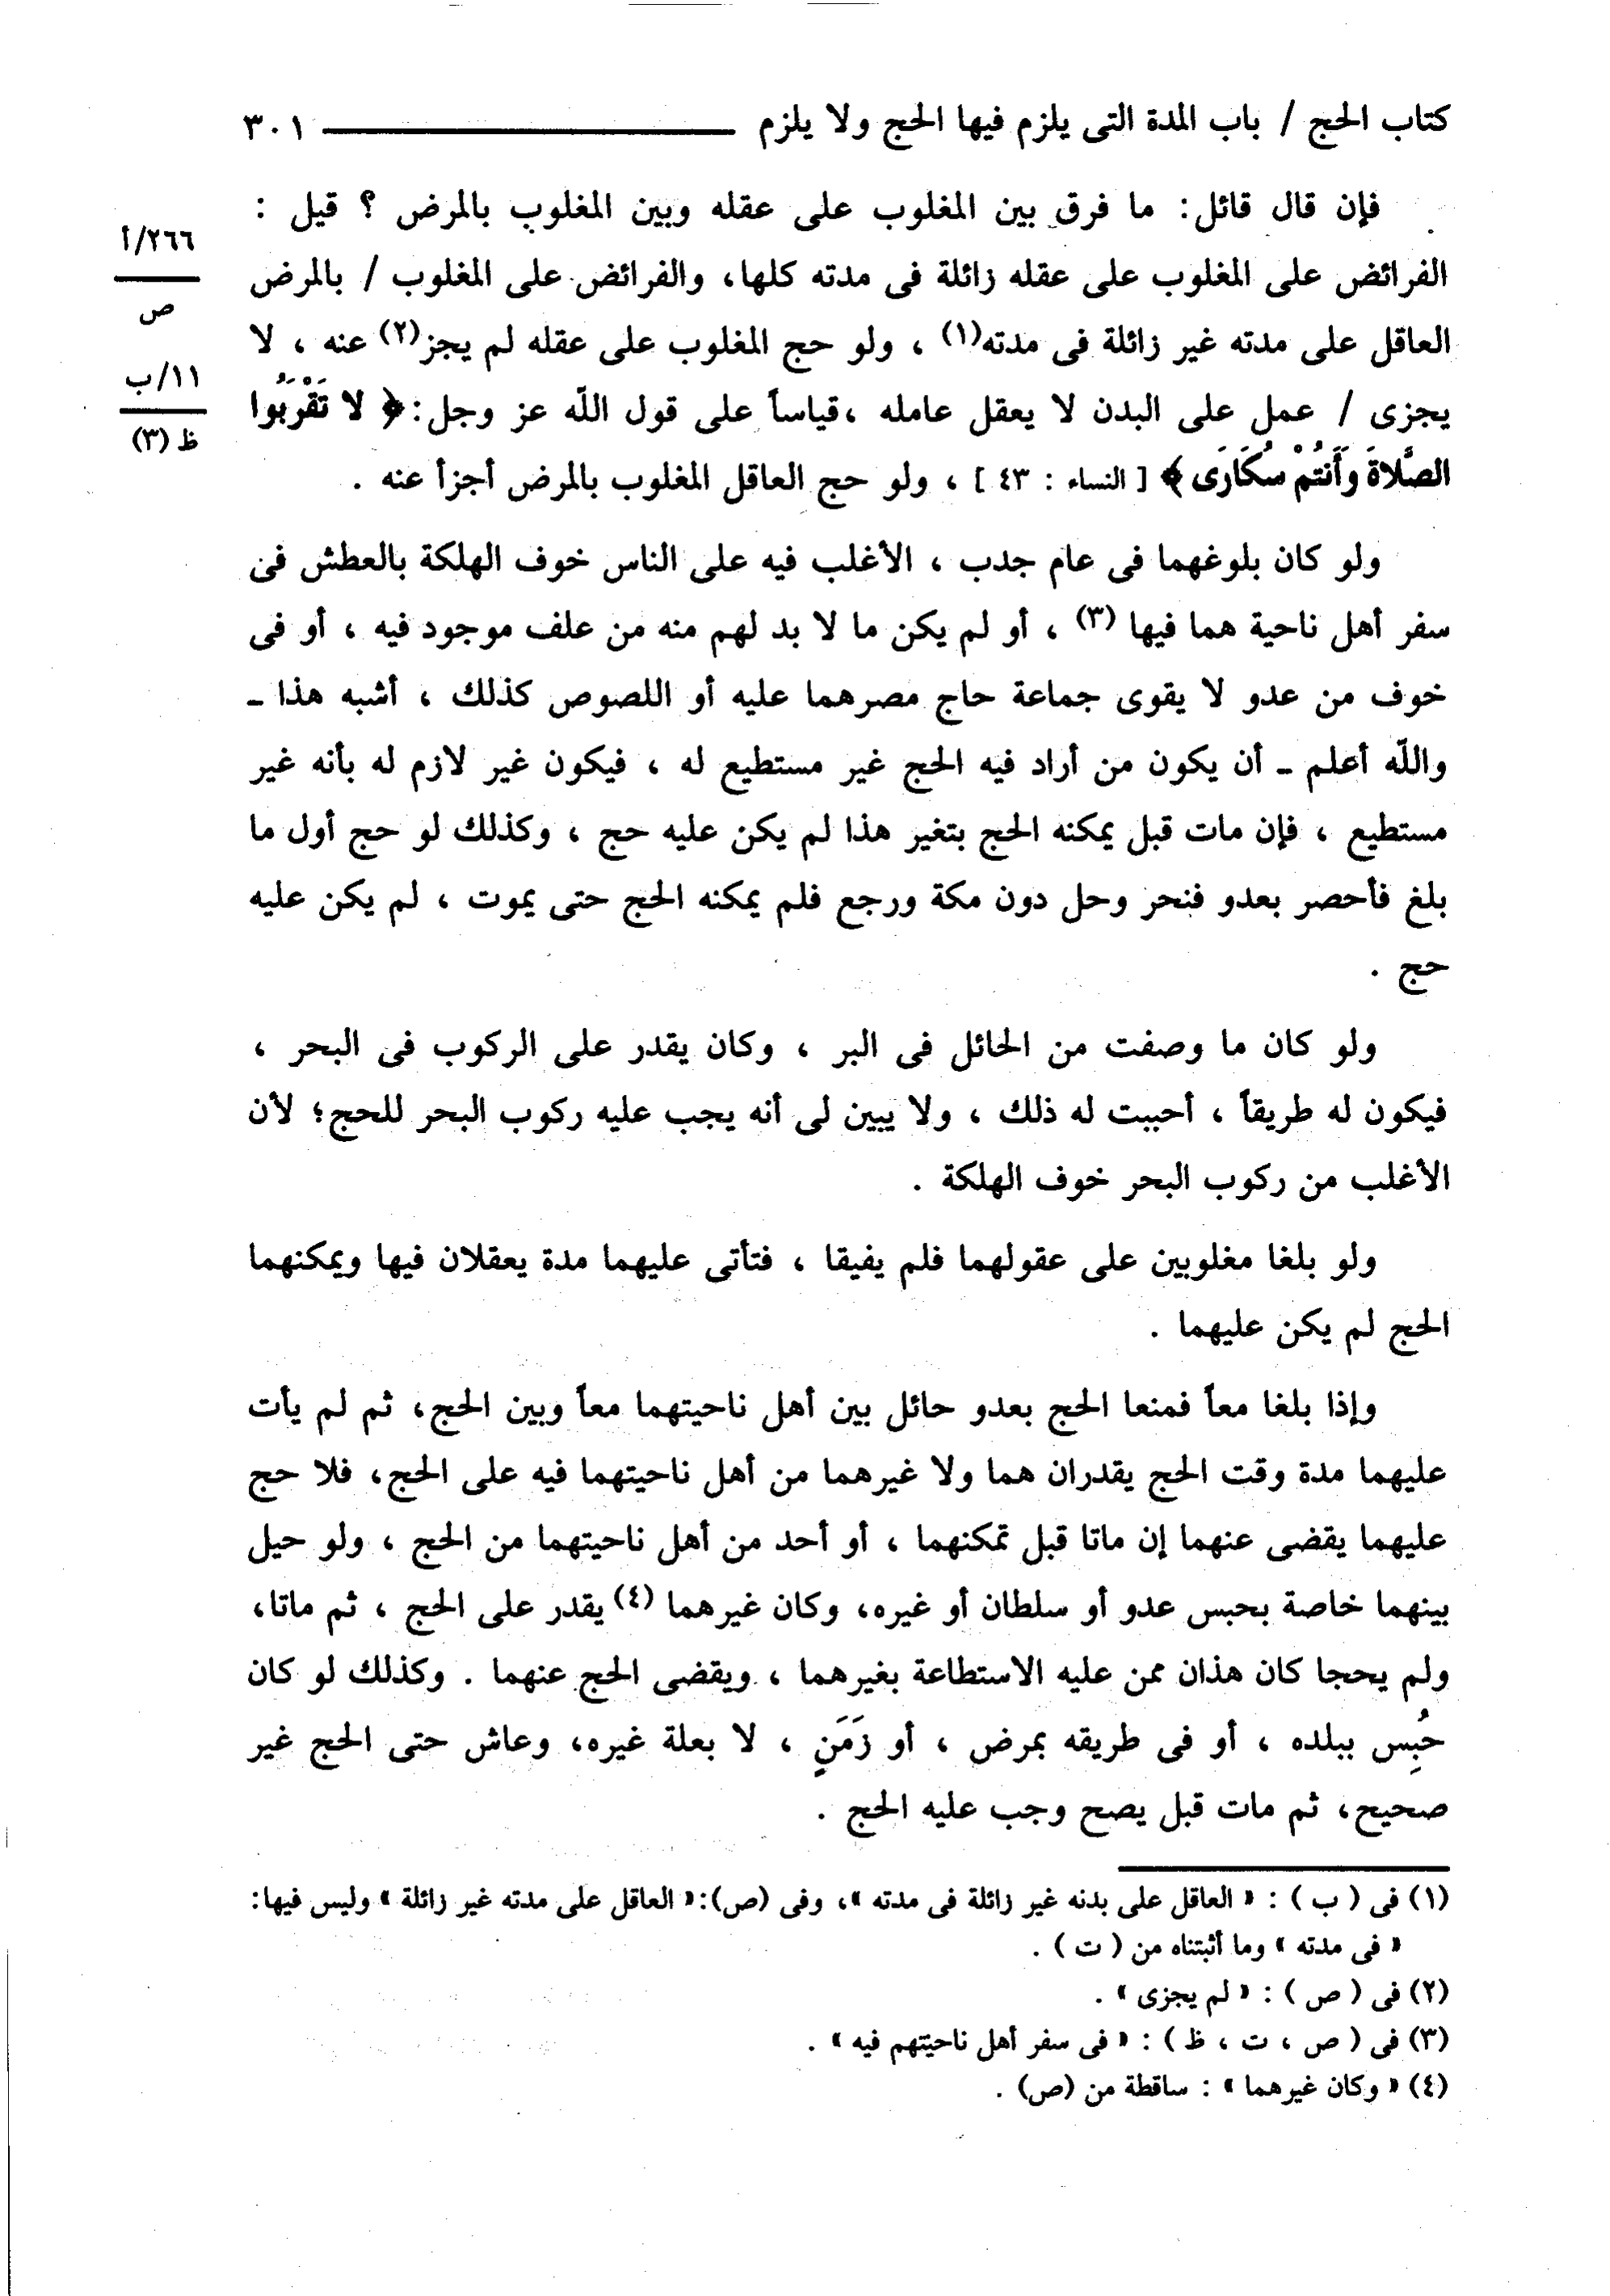 كتاب الحج / باب المدة التى يلزم فيها الحج ولا يلزم ــــــــــــ ٣٠١
فإن قال قائل: ما فرق بين المغلوب على عقله وبين المغلوب بالمرض ؟ قيل :
الفرائض على المغلوب على عقله زائلة فى مدته كلها، والفرائض على المغلوب / بالمرض
العاقل على مدته غير زائلة فى مدته(١) ، ولو حج المغلوب على عقله لم يجز(٢) عنه ، لا
يجزى / عمل على البدن لا يعقل عامله ،قياساً على قول الله عز وجل: ﴿ لا تَقْرَبُوا
الصَّلاةَ وَأَنتُمْ سُكَارَى ﴾ [ النساء : ٤٣ ] ، ولو حج العاقل المغلوب بالمرض أجزأ عنه .
٢٦٦/أ
ص
١١/ب
ظ (٣)
ولو كان بلوغهما فى عام جدب ، الأغلب فيه على الناس خوف الهلكة بالعطش فى
سفر أهل ناحية هما فيها (٣) ، أو لم يكن ما لا بد لهم منه من علف موجود فيه ، أو فى
خوف من عدو لا يقوى جماعة حاج مصرهما عليه أو اللصوص كذلك ، أشبه هذا ـ
والله أعلم ـ أن يكون من أراد فيه الحج غير مستطيع له ، فيكون غير لازم له بأنه غير
مستطيع ، فإن مات قبل يمكنه الحج بتغير هذا لم يكن عليه حج ، وكذلك لو حج أول ما
بلغ فأحصر بعدو فنحر وحل دون مكة ورجع فلم يمكنه الحج حتى يموت ، لم يكن عليه
حج .
ولو كان ما وصفت من الحائل فى البر ، وكان يقدر على الركوب فى البحر ،
فيكون له طريقاً ، أحببت له ذلك ، ولا يبين لى أنه يجب عليه ركوب البحر للحج؛ لأن
الأغلب من ركوب البحر خوف الهلكة .
ولو بلغا مغلوبين على عقولهما فلم يفيقا ، فتأتى عليهما مدة يعقلان فيها ويمكنهما
الحج لم يكن عليهما .
وإذا بلغا معاً فمنعا الحج بعدو حائل بين أهل ناحيتهما معاً وبين الحج، ثم لم يأت
عليهما مدة وقت الحج يقدران هما ولا غيرهما من أهل ناحيتهما فيه على الحج، فلا حج
عليهما يقضى عنهما إن ماتا قبل تمكنهما ، أو أحد من أهل ناحيتهما من الحج ، ولو حيل
بينهما خاصة بحبس عدو أو سلطان أو غيره، وكان غيرهما (٤) يقدر على الحج ، ثم ماتا،
ولم يحجا كان هذان ممن عليه الاستطاعة بغيرهما ، ويقضى الحج عنهما . وكذلك لو كان
حُبِس ببلده ، أو فى طريقه بمرض ، أو زَمَنٍ ، لا بعلة غيره، وعاش حتى الحج غير
صحيح، ثم مات قبل يصح وجب عليه الحج .
(١) فى ( ب ) : « العاقل على بدنه غير زائلة فى مدته »، وفى (ص):« العاقل على مدته غير زائلة » وليس فيها:
« فى مدته » وما أثبتناه من ( ت ) .
(٢) فى ( ص ) : « لم يجزى » .
(٣) فى ( ص ، ت ، ظ ) : « فى سفر أهل ناحيتهم فيه » .
(٤) « وكان غيرهما » : ساقطة من (ص) .